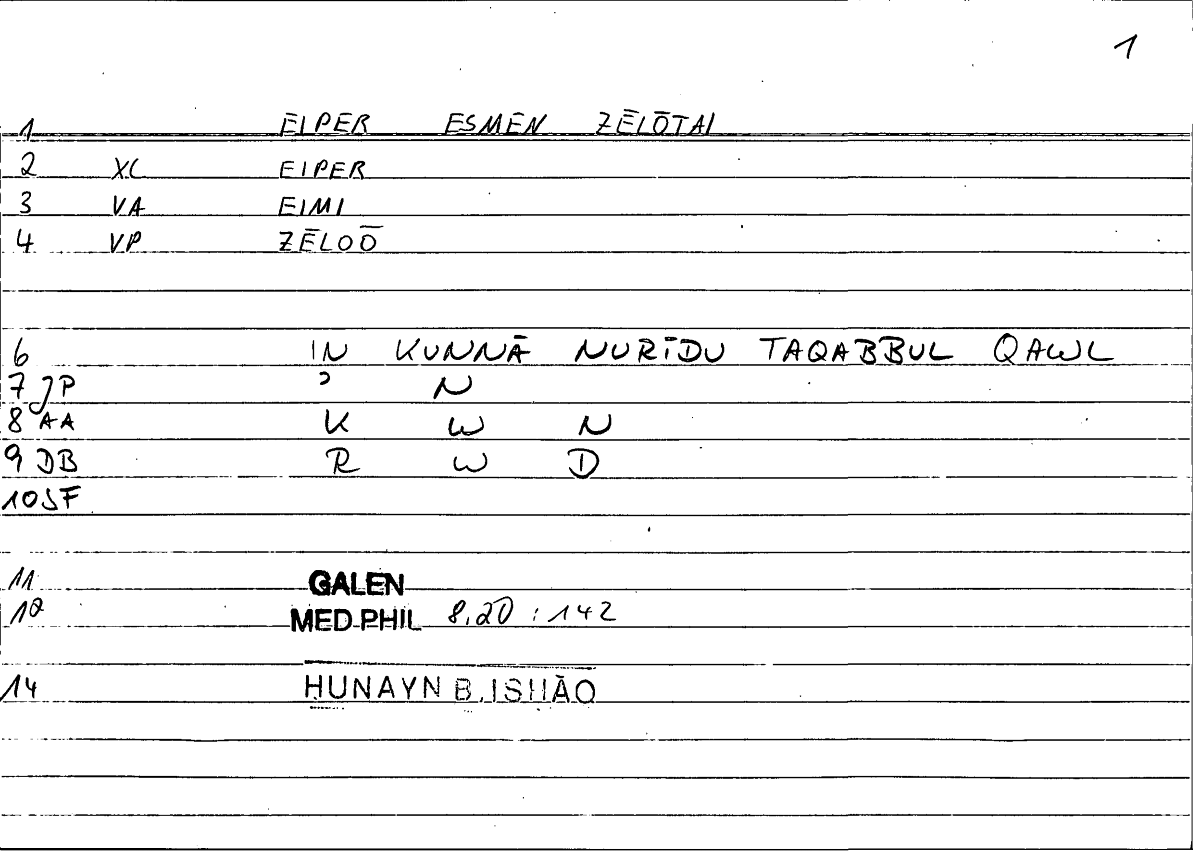 1
1 EIPER ESMEN ZĒLŌTAI
2 XC EIPER
3 VA EIMI
4 VP ZĒLOŌ
6 IN KUNNĀ NURĪDU TAQABBUL QAWL
7 JP ʾ N
8 AA K W N
9 DB R W D
10 SF
11 GALEN
12 MED.PHIL 8,20 : 142
14 HUNAYN B.ISHĀQ